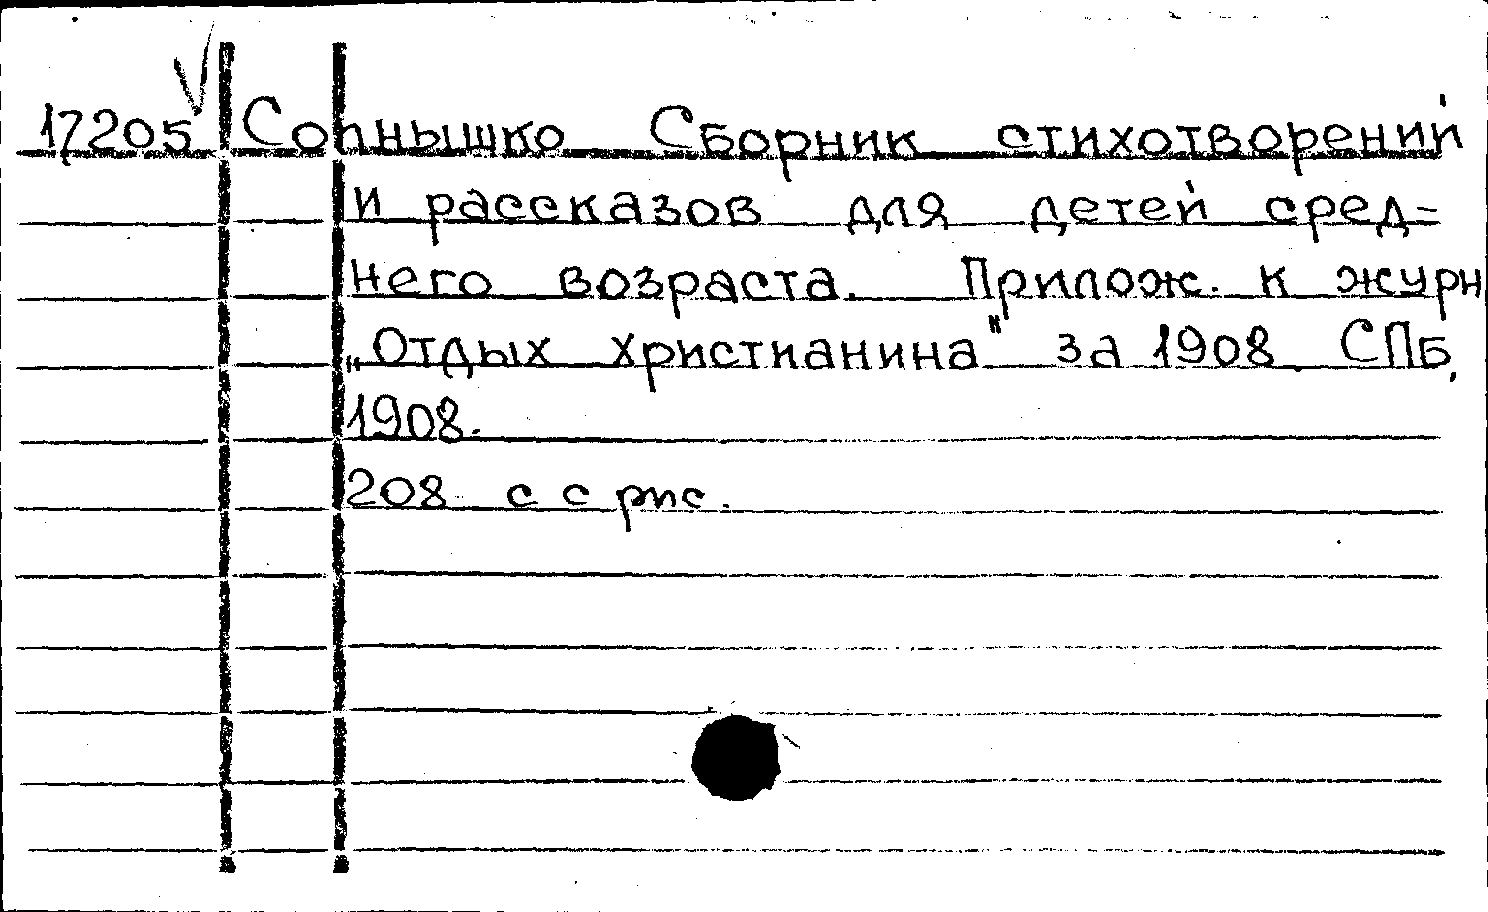 17205 Солнышко Сборник стихотворений
и рассказов для детей сред=
него возраста. Прилож. к журн
„Отдых христианина" за 1908 СПБ,
1908.
208 с с рис.